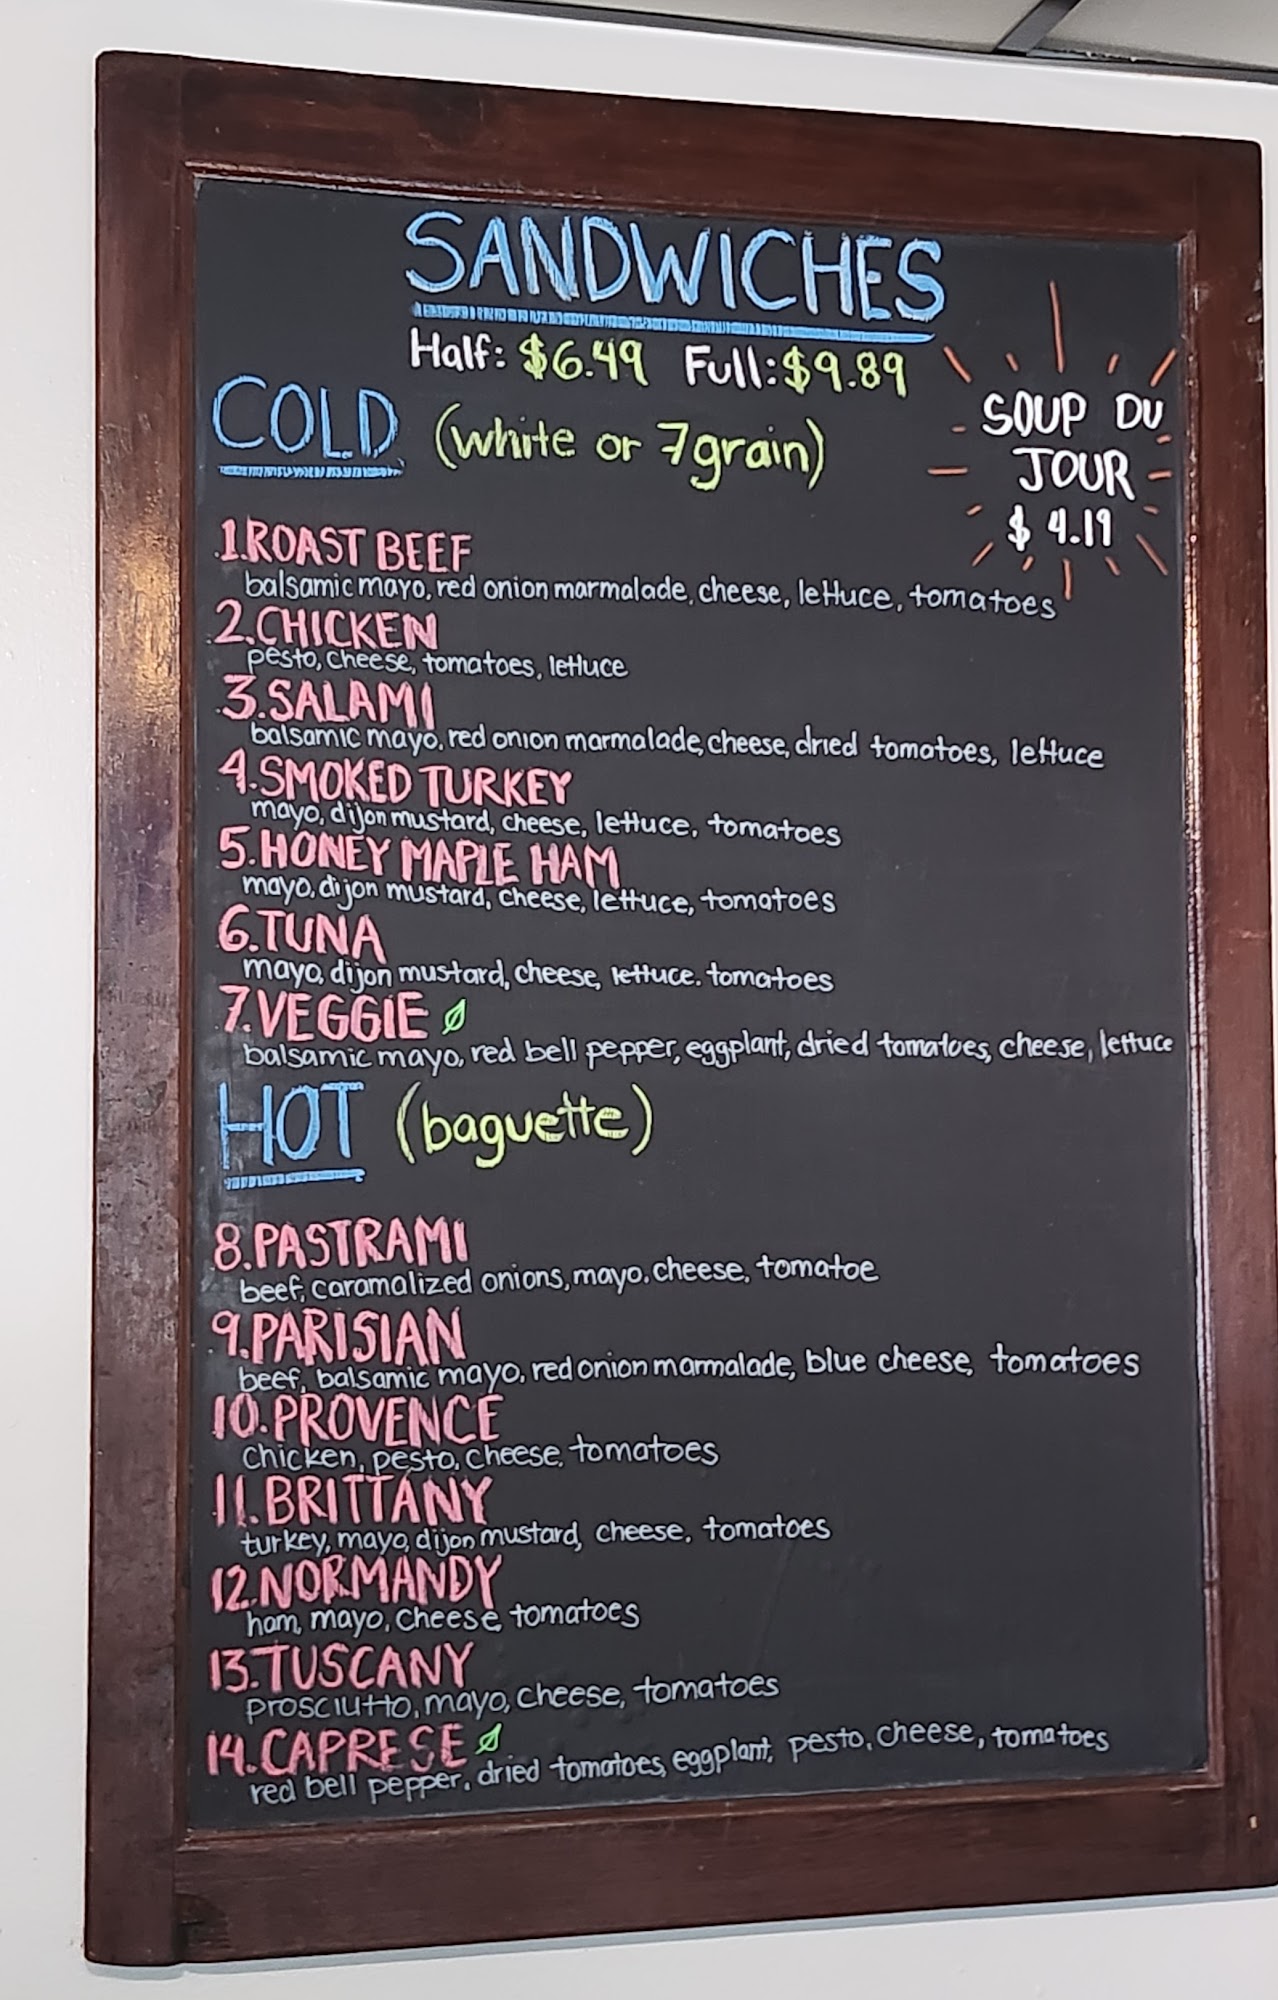 SANDWICHES
Half: $6.49 Full: $9.89
COLD (white or 7grain)
SOUP DU
JOUR
$ 4.19
1. ROAST BEEF
balsamic mayo, red onion marmalade, cheese, lettuce, tomatoes
2. CHICKEN
pesto, cheese, tomatoes, lettuce
3. SALAMI
balsamic mayo, red onion marmalade, cheese, dried tomatoes, lettuce
4. SMOKED TURKEY
mayo, dijon mustard, cheese, lettuce, tomatoes
5. HONEY MAPLE HAM
mayo, dijon mustard, cheese, lettuce, tomatoes
6. TUNA
mayo, dijon mustard, cheese, lettuce. tomatoes
7. VEGGIE
balsamic mayo, red bell pepper, eggplant, dried tomatoes, cheese, lettuce
HOT (baguette)
8. PASTRAMI
beef, caramalized onions, mayo. cheese, tomatoe
9. PARISIAN
beef, balsamic mayo, red onion marmalade, blue cheese, tomatoes
10. PROVENCE
chicken, pesto, cheese, tomatoes
11. BRITTANY
turkey, mayo, dijon mustard, cheese, tomatoes
12. NORMANDY
ham, mayo, cheese, tomatoes
13. TUSCANY
prosciutto, mayo, cheese, tomatoes
14. CAPRESE
red bell pepper, dried tomatoes, eggplant, pesto, cheese, tomatoes